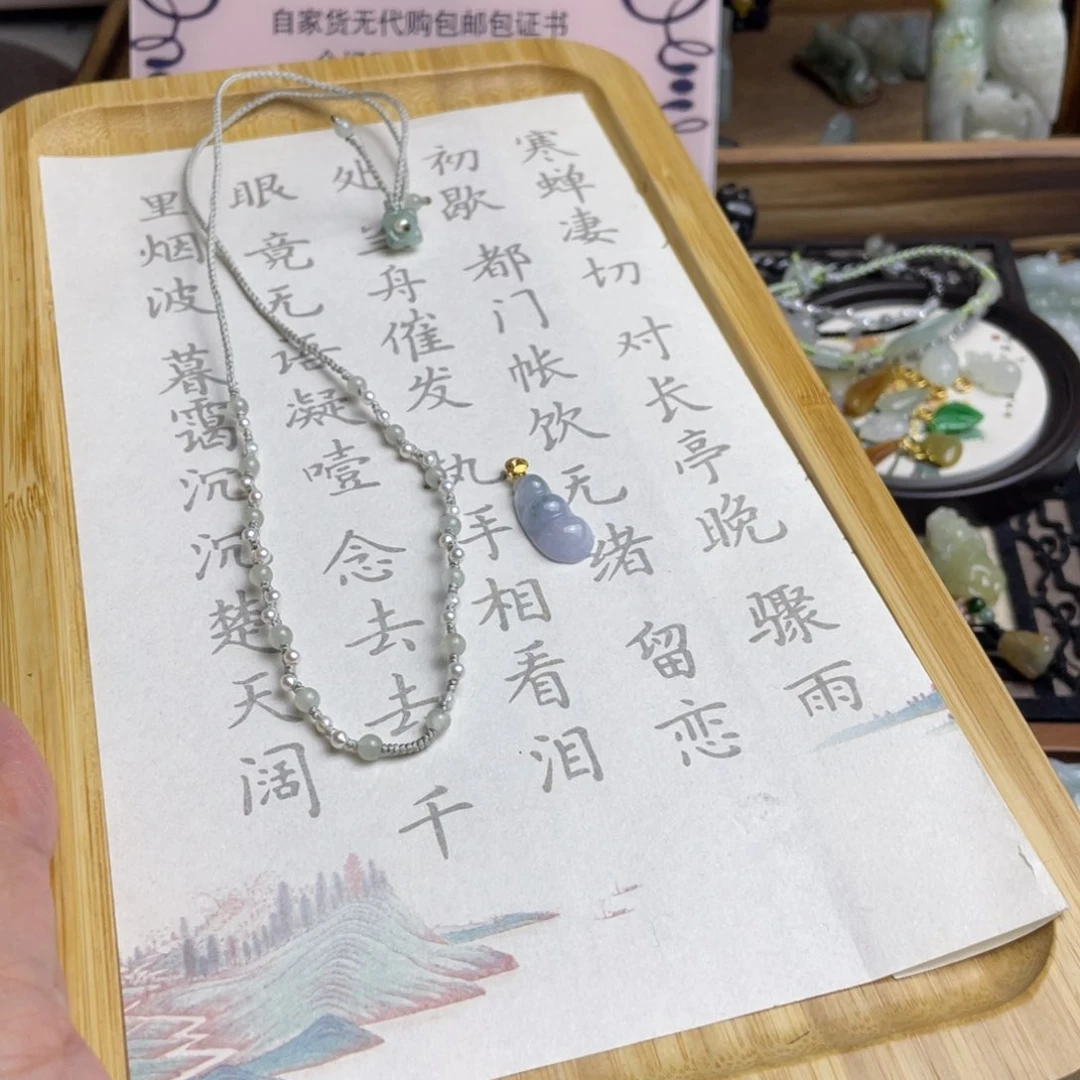 自家货无代购包邮包证书
寒蝉凄切 对长亭晚 骤雨
初歇 都门帐饮无绪 留恋
处 兰舟催发 执手相看泪
眼 竟无语凝噎 念去去 千
里烟波 暮霭沉沉楚天阔